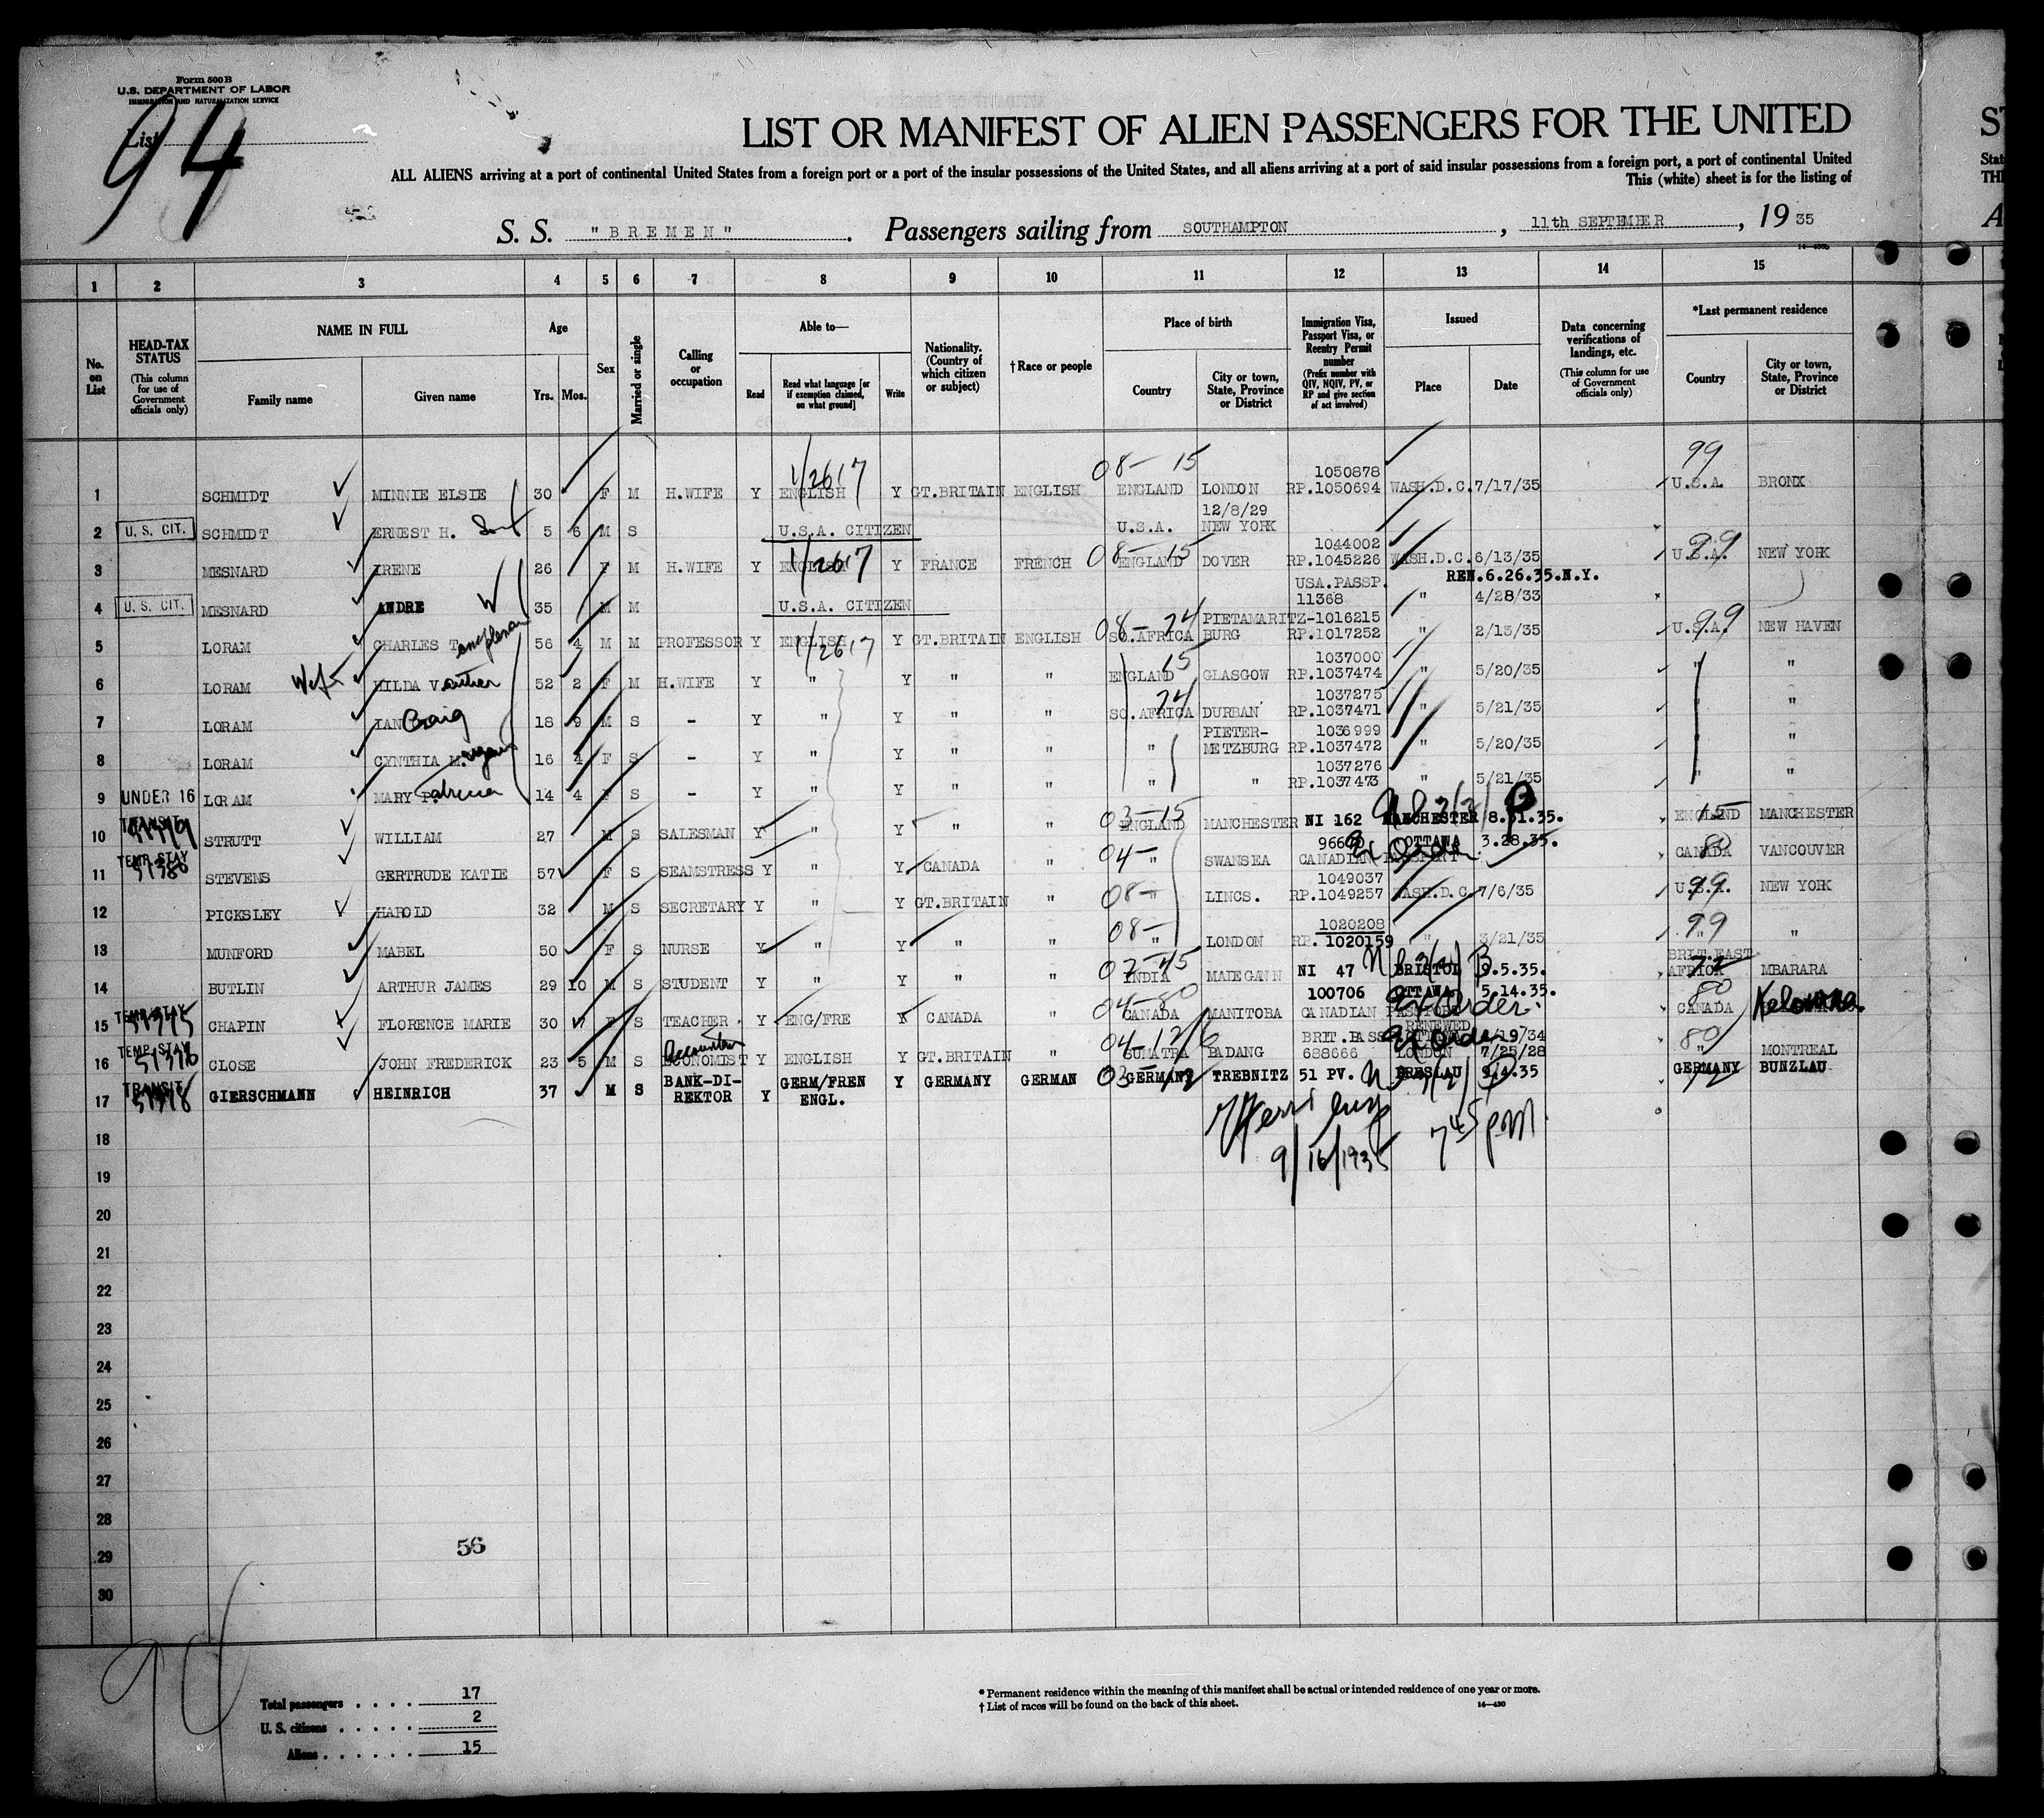 Form 500 B
U.S. DEPARTMENT OF LABOR
IMMIGRATION AND NATURALIZATION SERVICE
List
94
LIST OR MANIFEST OF ALIEN PASSENGERS FOR THE UNITED
ALL ALIENS arriving at a port of continental United States from a foreign port or a port of the insular possessions of the United States, and all aliens arriving at a port of said insular possessions from a foreign port, a port of continental United
This (white) sheet is for the listing of
S. S. "BREMEN" . Passengers sailing from SOUTHAMPTON , 11th SEPTEMBER , 19 35
1 2 3 4 5 6 7 8 9 10 11 12 13 14 15
No. on List
HEAD-TAX STATUS (This column for use of Government officials only)
NAME IN FULL Family name Given name
Age Yrs. Mos.
Sex
Married or single
Calling or occupation
Able to— Read Read what language [or if exemption claimed, on what ground] Write
Nationality. (Country of which citizen or subject)
†Race or people
Place of birth Country City or town, State, Province or District
Immigration Visa, Passport Visa, or Reentry Permit number (Prefix number with QIV, NQIV, PV, or RP and give section of act involved)
Issued Place Date
Data concerning verifications of landings, etc. (This column for use of Government officials only)
*Last permanent residence Country City or town, State, Province or District
1 SCHMIDT MINNIE ELSIE 30 F M H.WIFE Y ENGLISH 1/2617 Y GT.BRITAIN ENGLISH 08- 15 ENGLAND LONDON 1050878 RP.1050694 WASH.D.C. 7/17/35 99 U.S.A. BRONX
2 U. S. CIT. SCHMIDT ERNEST H. 5 6 M S U.S.A. CITIZEN U.S.A. 12/8/29 NEW YORK
3 MESNARD IRENE 26 F M H.WIFE Y ENGLISH 1/2617 Y FRANCE FRENCH 08-15 ENGLAND DOVER 1044002 RP.1045226 WASH.D.C. 6/13/35 99 U.S.A. NEW YORK
REN.6.26.35.N.Y.
4 U. S. CIT. MESNARD ANDRE 35 M M U.S.A. CITIZEN USA.PASSP. 11368 " 4/28/33
5 LORAM CHARLES T 56 4 M M PROFESSOR Y ENGLISH 1/2617 Y GT.BRITAIN ENGLISH 08-24 SO.AFRICA PIETAMARITZ-BURG 1016215 RP.1017252 " 2/15/35 99 U.S.A. NEW HAVEN
6 LORAM HILDA V 52 2 F M H.WIFE Y " Y " " 15 ENGLAND GLASGOW 1037000 RP.1037474 " 5/20/35 " "
7 LORAM IAN Craig 18 9 M S - Y " Y " " 24 SO.AFRICA DURBAN 1037275 RP.1037471 " 5/21/35 " "
8 LORAM CYNTHIA M. 16 4 F S - Y " Y " " " PIETER-METZBURG 1036999 RP.1037472 " 5/20/35 " "
9 UNDER 16 LORAM MARY Patricia 14 4 F S - Y " Y " " " " 1037276 RP.1037473 " 5/21/35 " "
10 TRANSIT STRUTT WILLIAM 27 M S SALESMAN Y " Y " " 03-15 ENGLAND MANCHESTER NI 162 MANCHESTER 8.31.35. 15 ENGLAND MANCHESTER
11 TEMP. STAY 51380 STEVENS GERTRUDE KATIE 57 F S SEAMSTRESS Y " Y CANADA " 04- " SWANSEA CANADIAN PASSPORT OTTAWA 3.28.35. 80 CANADA VANCOUVER
12 PICKSLEY HAROLD 32 M S SECRETARY Y " Y GT.BRITAIN " 08- " LINCS. 1049037 RP.1049257 WASH.D.C. 7/6/35 99 U.S.A. NEW YORK
13 MUNFORD MABEL 50 F S NURSE Y " Y " " 08- " LONDON 1020208 RP. 1020159 " 3/21/35 99 " "
14 BUTLIN ARTHUR JAMES 29 10 M S STUDENT Y " Y " " INDIA MADEGANN NI 47 BRISTOL 9.5.35. BRIT.EAST AFRICA MBARARA
15 TEMP. STAY CHAPIN FLORENCE MARIE 30 F S TEACHER Y ENG/FRE Y CANADA " 04-80 CANADA MANITOBA 100706 CANADIAN PASSPORT OTTAWA 5.14.35. 80 CANADA Kelowna
16 TEMP. STAY 51376 CLOSE JOHN FREDERICK 23 5 M S ECONOMIST Accountant Y ENGLISH Y GT.BRITAIN " SUMATRA PADANG BRIT.PASS 688666 RENEWED LONDON 7/25/28 80 " MONTREAL
17 TRANSIT 51378 GIERSCHMANN HEINRICH 37 M S BANK-DI-REKTOR Y GERM/FREN ENGL. Y GERMANY GERMAN GERMANY TREBNITZ 51 PV. BRESLAU 9.4.35 GERMANY BUNZLAU
9/16/1935 7 45 P.M.
18
19
20
21
22
23
24
25
26
27
28
29
30
56
Total passengers . . . . 17
U. S. citizens . . . . . 2
Aliens . . . . . . 15
* Permanent residence within the meaning of this manifest shall be actual or intended residence of one year or more.
† List of races will be found on the back of this sheet.
14—430